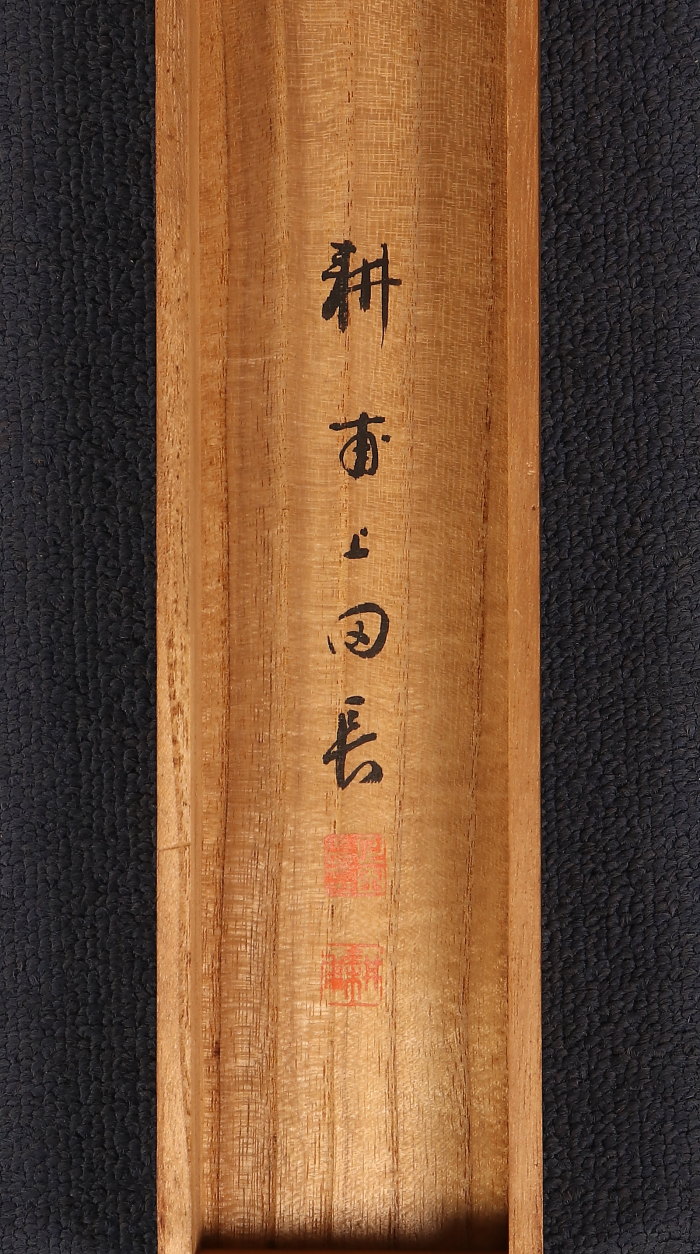 耕甫上田長